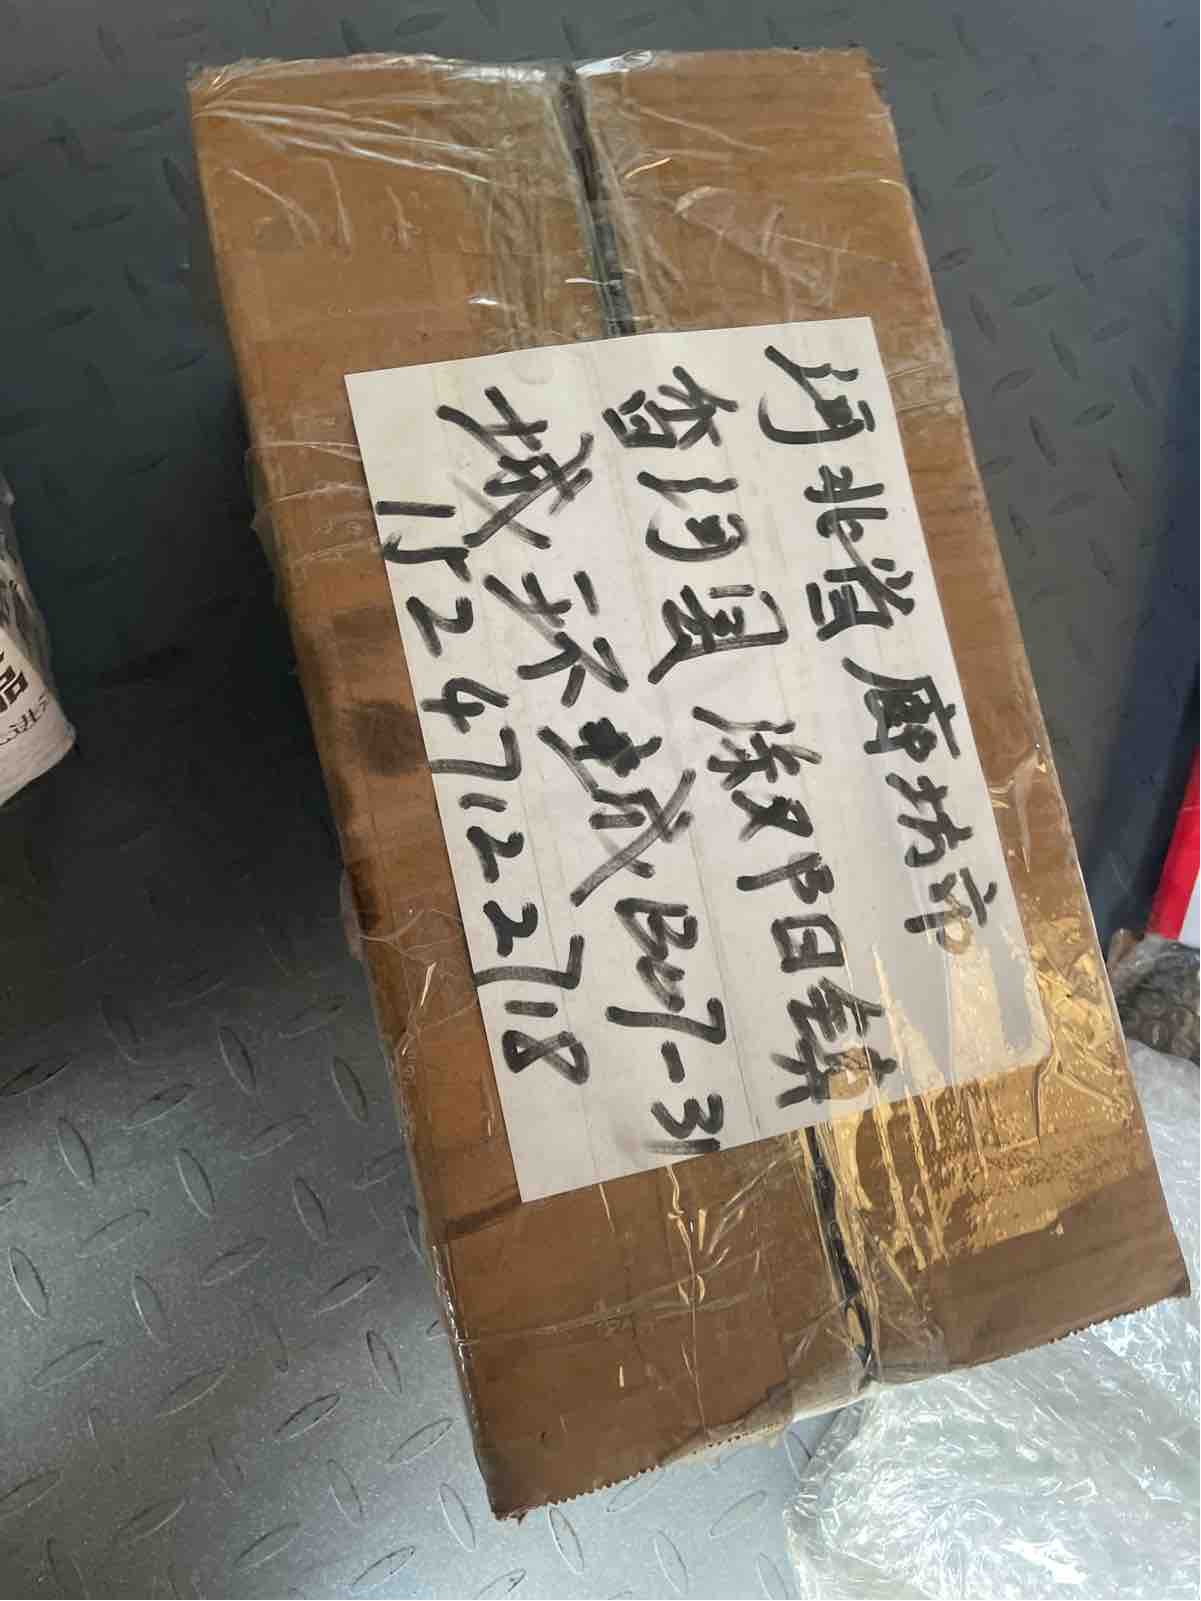 河北省廊坊市
香河县淑阳镇
城环城B 7-31
15247122718